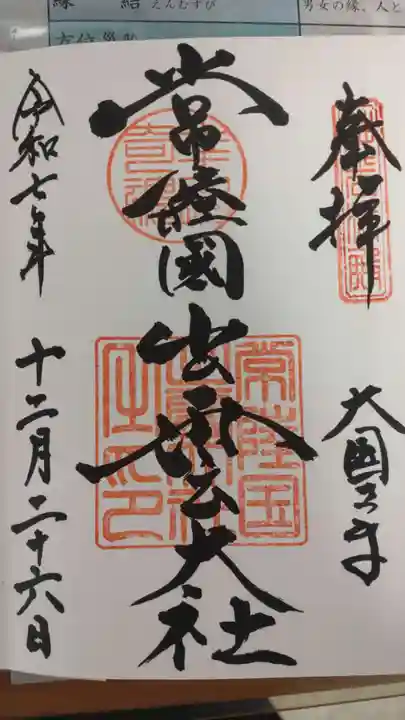 縁 結 えんむすび
男女の縁、人と
奉拝
大国さま
常陸國出雲大社
令和七年 十二月二十六日
常陸国